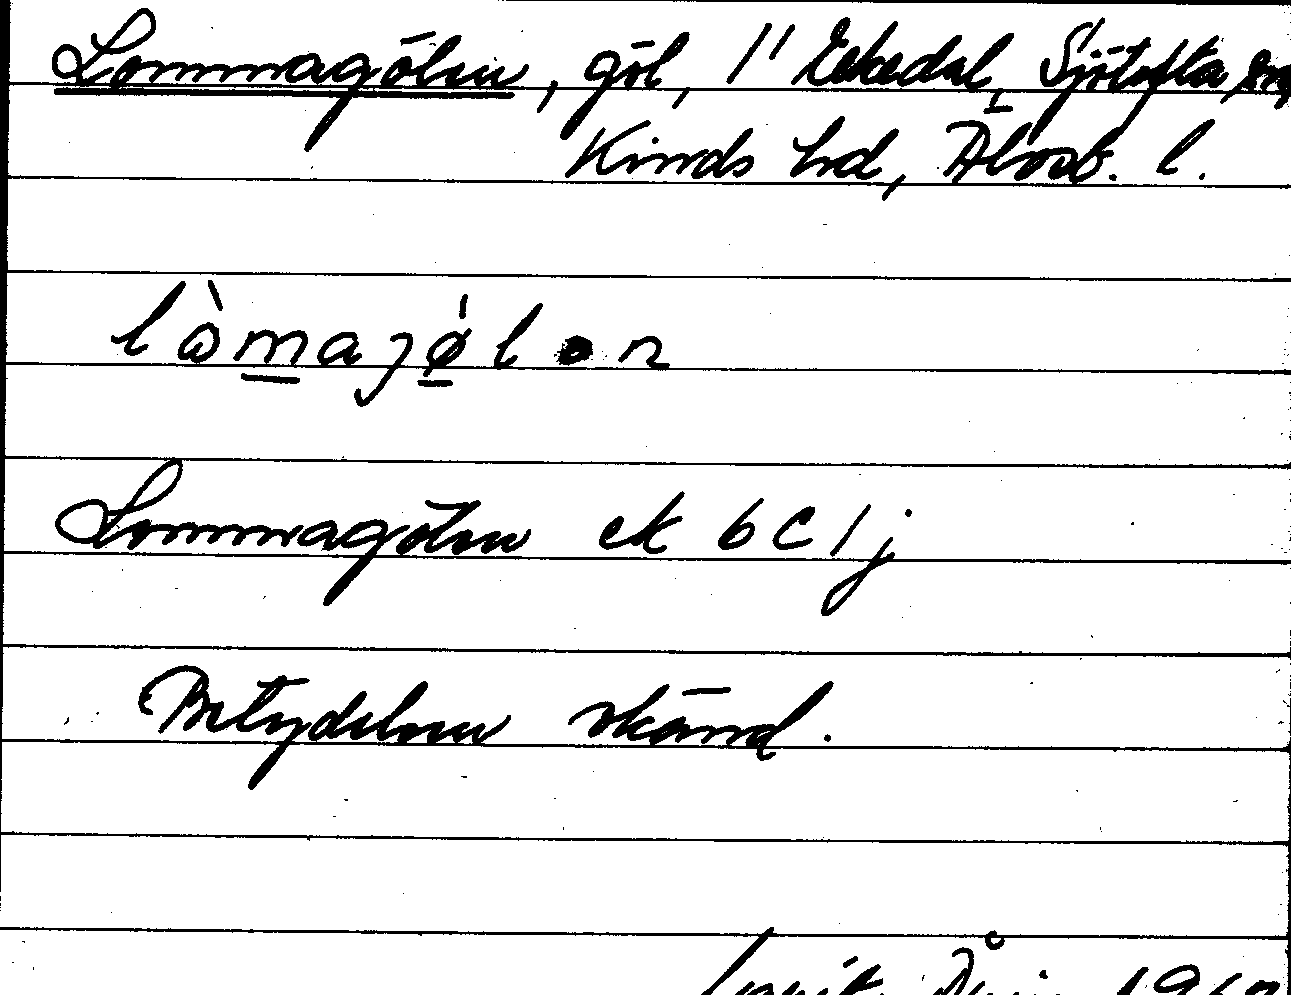 Lommagölen, göl, 1" Ekedal, Sjötofta sn,
Kinds hd, Älvsb. l.
l ὼ m a j ǿ l ə n
Lommagölen ek 6 C 1 j
Betydelsen okänd.